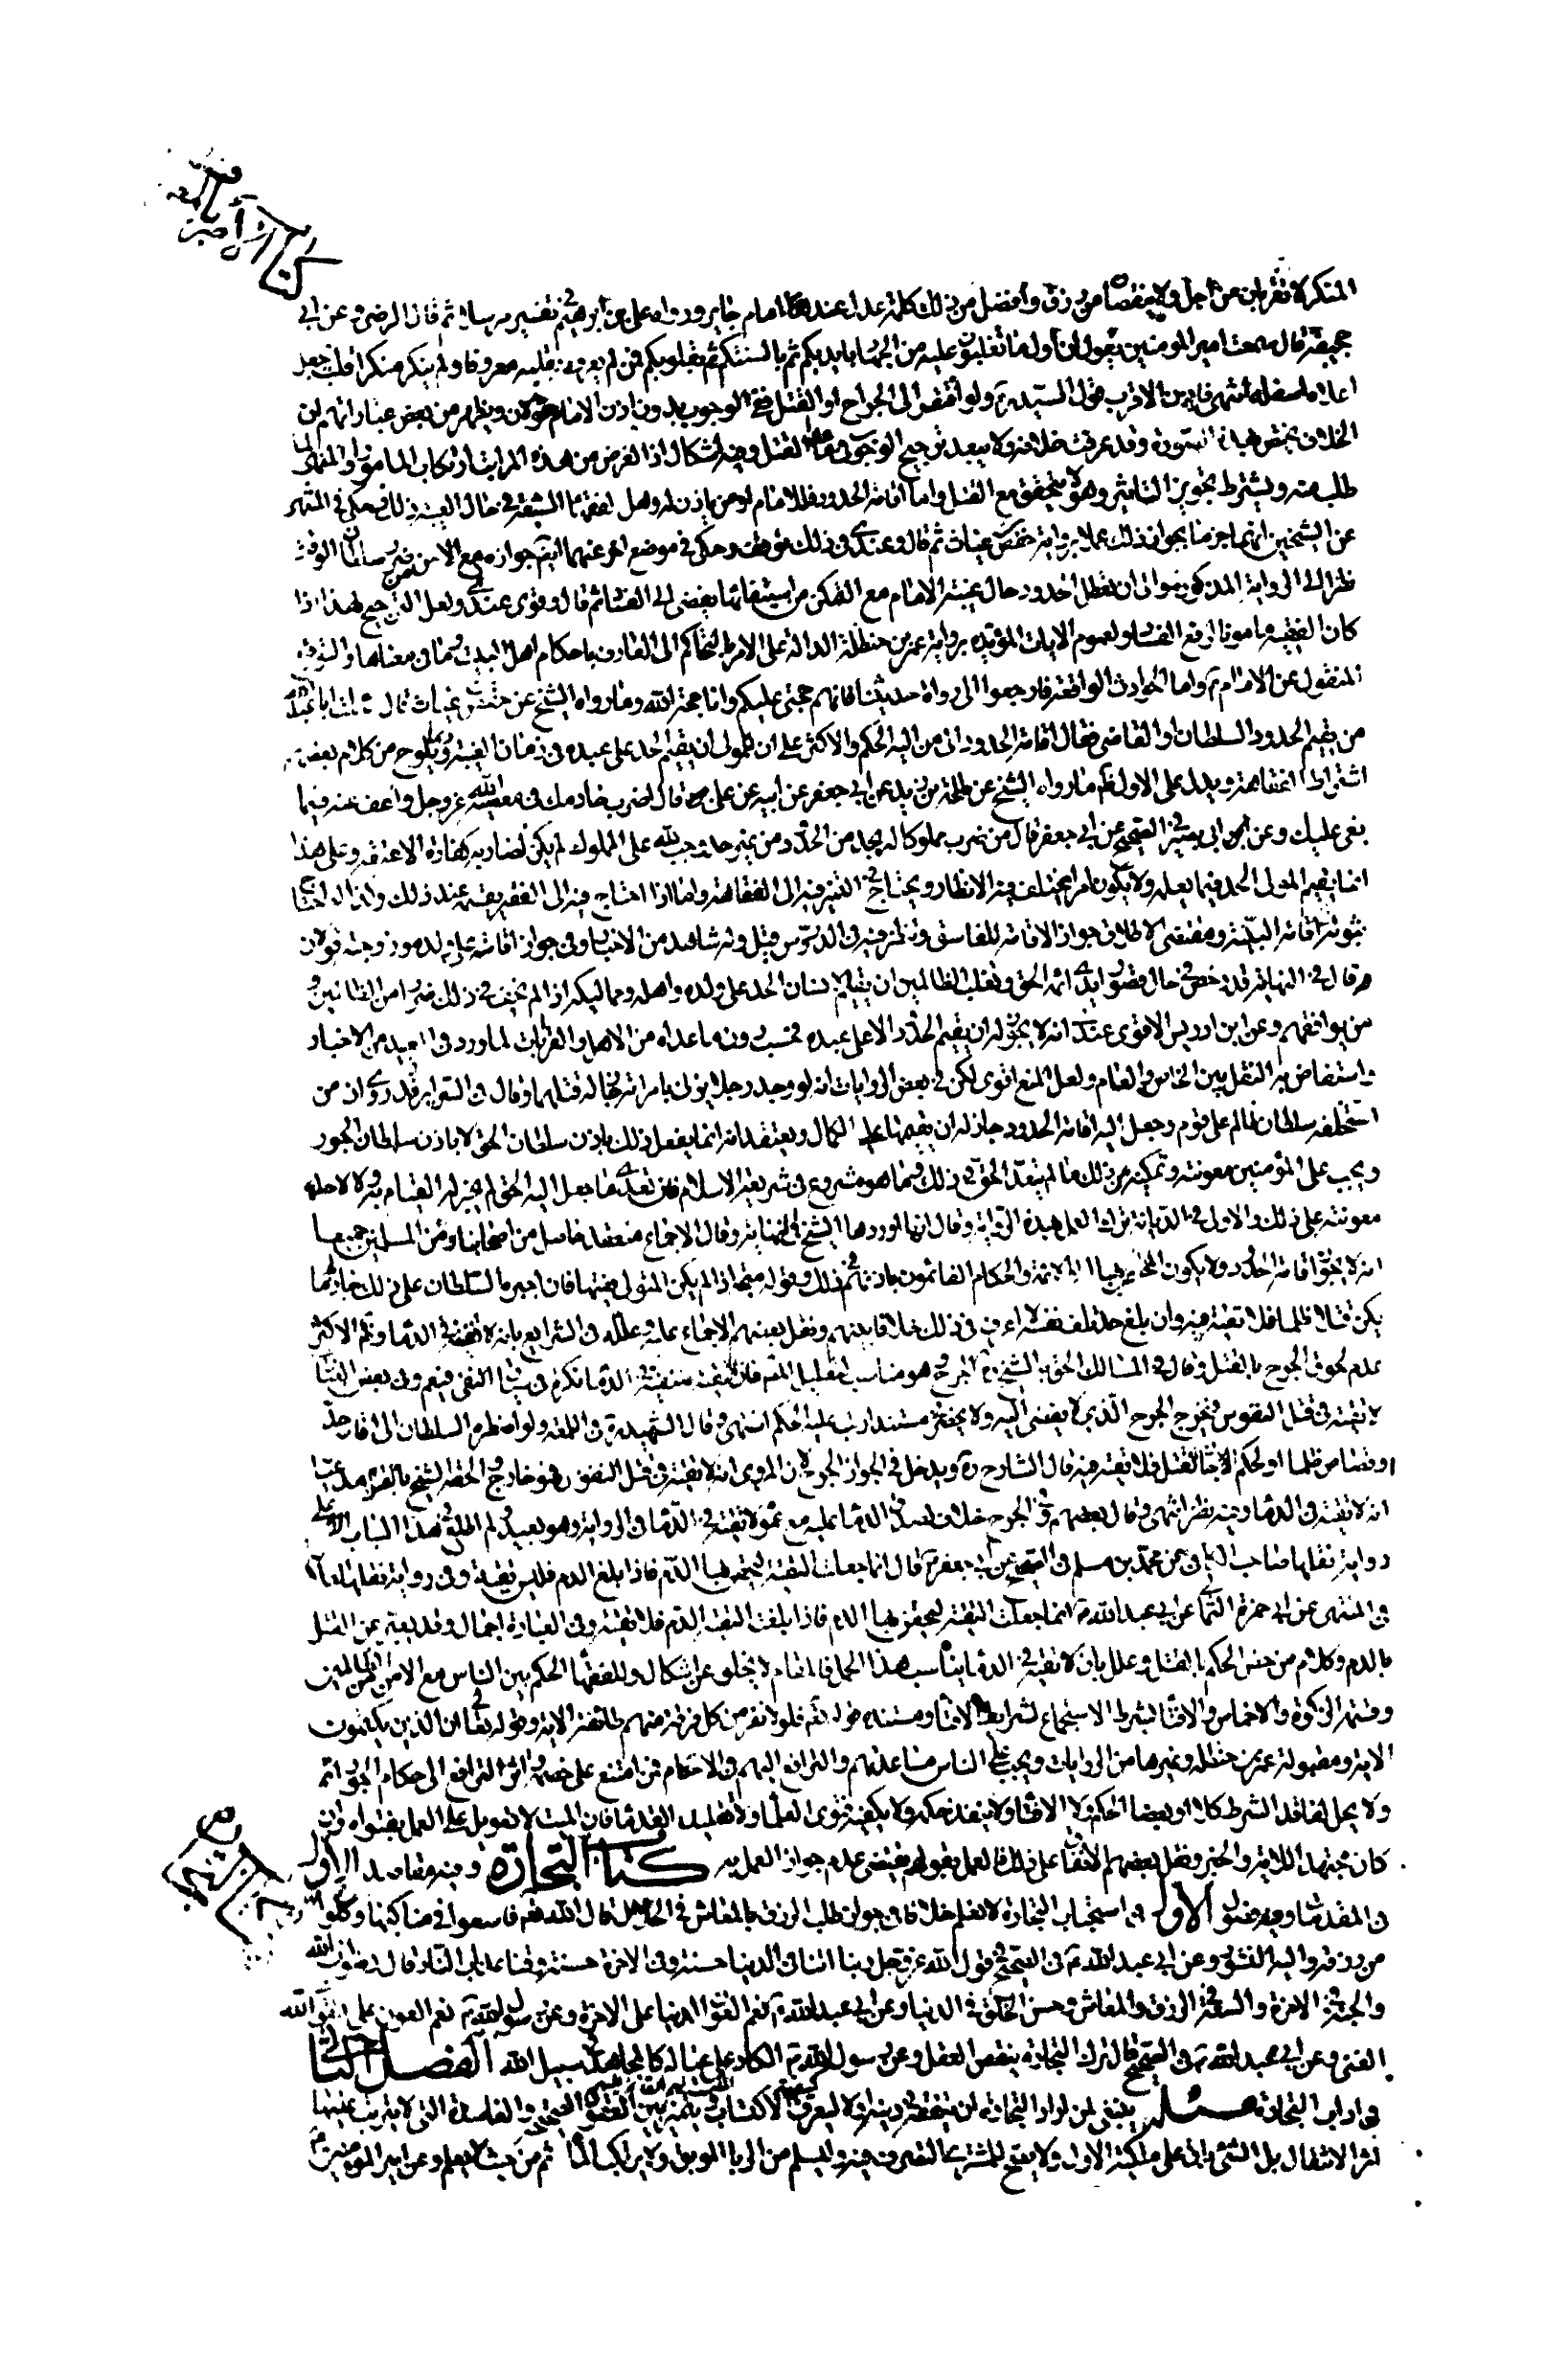 كتاب الأمر بالمعروف
المنكر لا تقربان من اجل ولا ينقصان من رزق وافضل من ذلك كلمة عدل عند امام جاير ورواه علي بن ابرهيم في تفسيره مرسلا ثم قال الرضي وعن ابي
جحيفة قال سمعت امير المومنين يقول ان اول ما تغلبون عليه من الجهاد بايديكم ثم بالسنتكم ثم بقلوبكم فمن لم يعرف بقلبه معروفا ولم ينكر منكرا قلب فجعل
اعلاه اسفله انتهى الاقرب قول السيد ره ولو افتقر الى الجراح او القتل ففي الوجوب بدون اذن الامام قولان ويظهر من بعض عباراتهم ان
الخلاف يختص بهذه الصورة وقد عرفت خلافه ولا يبعد ترجيح الوجوب القتل وفيه اشكال اذ الغرض من هذه المراتب ارتكاب المامور او المنهي
طلب منه ويشترط تجويز التاثير وهو لا يتحقق مع القتل واما اقامة الحدود فللامام او من ياذن له وهل لفقهاء الشيعة في حال الغيبة ذلك فحكى في المنتهى
عن الشيخين انهما جزما بجواز ذلك عملا برواية حفص بن غياث ثم قال وعندي في ذلك توقف وحكى في موضع اخر عنهما ايضا جوازه مع الامن من ضرر سلطان الوقت
نظرا الى الرواية المذكورة ان تعطل الحدود حال غيبة الامام مع التمكن من استيفائها يفضي الى الفساد ثم قال وهو قوي عندي ولعل الترجيح لهذا اذا
كان الفقيه مامونا لرفع الفساد ولعموم الايات المؤيده برواية عمر بن حنظلة الدالة على الامر بالتحاكم الى العارف باحكام اهل البيت وما في معناها والتوقيع
المنقول عن الامام واما الحوادث الواقعة فارجعوا الى رواة حديثنا فانهم حجتي عليكم وانا حجة الله وما رواه الشيخ عن حفص بن غياث قال سالت ابا عبد الله
من يقيم الحدود السلطان او القاضي فقال اقامة الحدود الى من اليه الحكم والاكثر على ان للمولى ان يقيم الحد على عبده في زمان الغيبة ويلوح من كلام بعضهم
اشتراط الفقاهة ويدل على الاول ما رواه الشيخ عن طلحة بن زيد عن ابي جعفر عن ابيه عن علي قال اضرب خادمك في معصية الله عز وجل واعف عنه فيما
ياتي اليك وعن ابي بصير في الصحيح عن ابي جعفر قال من ضرب مملوكا له بحد من الحدود من غير حد وجب لله على المملوك لم يكن لضاربه كفارة الا عتقه وعلى هذا
انما يقيم المولى الحد فيما يعلمه ولا يكون امر يختلف فيه الانظار ويحتاج في التميز فيه الى الفقاهة واما اذا احتاج فيه الى الفقيه عند ذلك
ثبوته اقامة البينة ومقتضى الاطلاق جواز الاقامة للفاسق ونظر فيه في الدروس قيل وله شاهد من الاخبار وفي جواز اقامته على ولده وزوجته قولان
وقال في النهاية قد رخص في حال قصور ايدي ائمة الحق وتغلب الظالمين ان يقيم الانسان الحد على ولده واهله ومماليكه اذا لم يخف في ذلك ضررا من الظالمين و
من بوائقهم وعن ابن ادريس الاقوى عندي انه لا يجوز له ان يقيم الحدود الا على عبده فحسب دون ما عداه من الاهل والقرابات لما ورد في العبيد من الاخبار
واستفاض به النقل بين الخاص والعام ولعل المنع اقوى لكن في بعض الروايات انه لو وجد رجلا يزني بامراته جاز له قتلهما وقال في السرائر قد روي ان من
استخلفه سلطان ظالم على قوم وجعل اليه اقامة الحدود جاز له ان يقيمها على الكمال ويعتقد انه انما يفعل ذلك باذن سلطان الحق لا باذن سلطان الجور
ويجب على المؤمنين معونته وتمكينه من ذلك ما لم يتعد الحق في ذلك وما هو مشروع في شريعة الاسلام فان تعدى ما جعل اليه الحق لم يجز له القيام به ولا لاحد
معونته على ذلك والاولى في الديانة ترك العمل بهذه الرواية وقال انها اوردها الشيخ في النهاية وقال الاجماع منعقد حاصل من اصحابنا ومن المسلمين جميعا
انه لا يجوز اقامة الحدود ولا يكون المخاطب بها الا الائمة والحكام القائمون باذنهم في ذلك وقوله متجه اذا لم يكن المتولي فقيها فان اجبره السلطان على ذلك جاز ما لم
يكن قتلا ظلما فلا تقية فيه وان بلغ حد تلف نفسه لا اعرف في ذلك خلافا بينهم ونقل بعضهم الاجماع عليه وعلله في الشرايع بانه لا تقية في الدماء وظاهر الاكثر
عدم لحوق الجرح بالقتل وقال في المسالك الحق به الشيخ ره الجرح وهو مناسب لتعليل المصنف فان التقية منفية في الدماء نكرة في سياق النفي فيعم وفي بعض العبارات
لا تقية في قتل النفوس فيخرج الجرح الذي لا يفضي اليه ولا يحضرني مستند ارتب عليه الحكم انتهى وقال الشهيد ره في اللمعة ولو اضطره السلطان الى اقامة حد
او قصاص ظلما او لحكم الا القتل فلا تقية فيه قال الشارح ره ويدخل في الجواز الجرح لان المروي انه لا تقية في قتل النفوس فهو خارج والحقه الشيخ بالقتل مدعيا
انه لا تقية في الدماء وفيه نظر انتهى وقال بعضهم في الجرح خلاف لصدق الدماء عليه مع عموم لا تقية في الدماء في الرواية وهو بعيد ولم اطلع في هذا الباب الا على
رواية نقلها صاحب الكافي عن محمد بن مسلم في الصحيح عن ابي جعفر قال انما جعلت التقية ليحقن بها الدم فاذا بلغ الدم فليس تقية وفي رواية نقلها العلامة
في المنتهى عن ابي حمزة الثمالي عن ابي عبد الله انما جعلت التقية ليحقن بها الدم فاذا بلغت التقية الدم فلا تقية وفي العبارة اجمال وقد يعبر عن القتل
بالدم وكلام من خص الحكم بالقتل وعلل بان لا تقية في الدماء يناسب هذا الحمل فالمقام لا يخلو عن اشكال وللفقهاء الحكم بين الناس مع الامن من الظالمين
وقسمة الزكوة والاخماس والافتاء بشرط الاستجماع لشرايط الافتاء ومستنده قوله تعالى فلولا نفر من كل فرقة منهم طائفة الاية وقوله تعالى ان الذين يكتمون
الاية ومقبولة عمر بن حنظلة وغيرها من الروايات ويجب على الناس مساعدتهم والترافع اليهم في الاحكام فمن امتنع على خصمه واثر الترافع الى حكام الجور اثم
ولا يحل لفاقد الشرط كلا او بعضا الحكم ولا الافتاء ولا ينفذ حكمه ولا يكفيه فتوى العلماء ولا تقليد القدماء فان الميت لا تعويل على العمل بفتواه وان
كان مجتهدا للاية والخبر ونقل بعضهم الاتفاق على ذلك فالعمل بقولهم يقتضي عدم جواز العمل به كتاب التجارة وفيه مقاصد الاول
في المقدمات وفيه فصول الاول في استحباب التجارة لا نعلم خلافا في جواز طلب الرزق بالمعاش في الحلال قال الله تعالى فامشوا في مناكبها وكلوا
من رزقه واليه النشور وعن ابي عبد الله في الصحيح في قول الله عز وجل ربنا اتنا في الدنيا حسنة وفي الاخرة حسنة وقنا عذاب النار قال رضوان الله
والجنة في الاخرة والسعة في الرزق والمعاش وحسن الخلق في الدنيا وعن ابي عبد الله نعم العون الدنيا على الاخرة وعن رسول الله نعم العون على تقوى الله
الغنى وعن ابي عبد الله في الصحيح قال ترك التجارة ينقص العقل وعن رسول الله الكاد على عياله كالمجاهد في سبيل الله الفصل الثاني
في اداب التجارة مسئلة ينبغي لمن اراد التجارة ان يتفقه في دينه اولا ليعرف كيفية الاكتساب ويميز بين العقود الصحيحة والفاسدة التي لا يترتب عليها
اثر الانتقال بل الشيء باق على ملكية الاول ولا يصح للمشتري التصرف فيه وليسلم من الربا الموبق ولا يرتكب الماثم من حيث لا يعلم وعن امير المومنين
كتاب التجارة